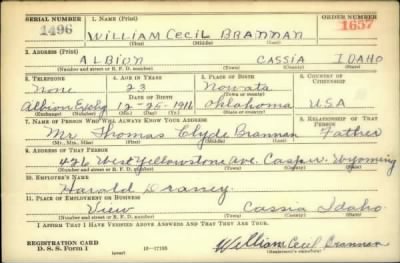 SERIAL NUMBER 1. NAME (Print) ORDER NUMBER
1496 WILLIAM CECIL BRANNAN 1657
(First) (Middle) (Last)
2. ADDRESS (Print)
ALBION CASSIA IDAHO
(Number and street or R. F. D. number) (Town) (County) (State)
3. TELEPHONE 4. AGE IN YEARS 5. PLACE OF BIRTH 6. COUNTRY OF CITIZENSHIP
None 23 Nowata
DATE OF BIRTH (Town or county)
Albion 12-25-1916 Oklahoma USA
(Exchange) (Number) (Mo.) (Day) (Yr.) (State or country)
7. NAME OF PERSON WHO WILL ALWAYS KNOW YOUR ADDRESS 8. RELATIONSHIP OF THAT PERSON
Mr. Thomas Clyde Brannan Father
(Mr., Mrs., Miss) (First) (Middle) (Last)
9. ADDRESS OF THAT PERSON
426 West Yellowstone Ave. Casper. Wyoming
(Number and street or R. F. D. number) (Town) (County) (State)
10. EMPLOYER'S NAME
Harold
11. PLACE OF EMPLOYMENT OR BUSINESS
View Cassia Idaho.
(Number and street or R. F. D. number) (Town) (County) (State)
I AFFIRM THAT I HAVE VERIFIED ABOVE ANSWERS AND THAT THEY ARE TRUE.
REGISTRATION CARD
D. S. S. Form 1 (over) 16-17105 William Cecil Brannan
(Registrant's signature)